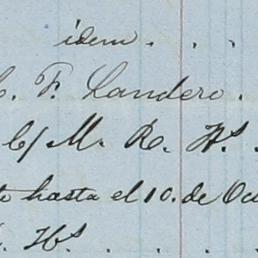 idem . . .
C. F. Landero .
C/ M. R. Hs .
hasta el 10. de Oc
. Hs . . . .